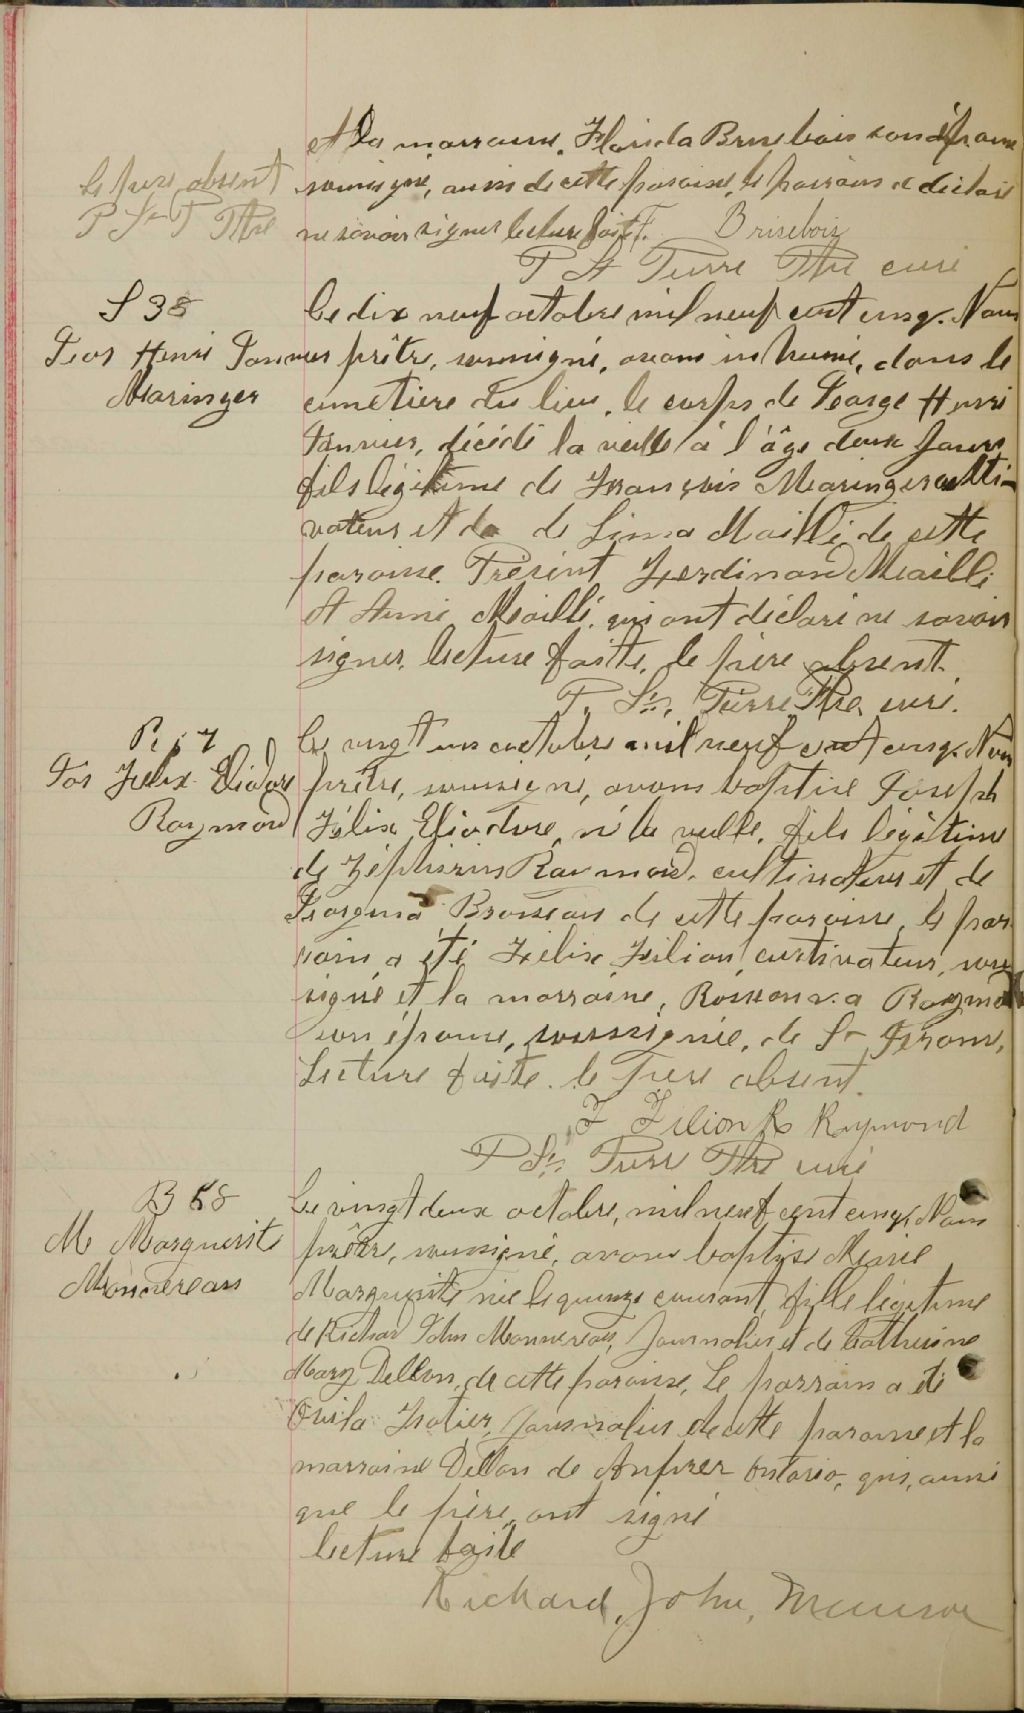 et la marraine, Florida Brisebois son épouse
Le père absent
soussigné, aussi de cette paroisse, le parrain a déclaré
P St P Ptre
ne savoir signer lecture faite F. Brisebois
P St Pierre Ptre curé
S 38
Le dix neuf octobre mil neuf cent cinq. Nous
Geor Henri Janvier
prêtre, soussigné, avons inhumé, dans le
Maringer
cimetière du lieu, le corps de George Henri
Janvier, décédé la veille à l'âge deux jours
fils légitime de François Maringer culti-
vateur et de de Lima Maillé de cette
paroisse. Présent Ferdinand Maillé
et Aimé Maillé, qui ont déclaré ne savoir
signer. lecture faite. le père absent.
P. St. Pierre Ptre curé.
57
Le vingt un octobre mil neuf cent cinq. Nous
Jos Felix Eliodore
prêtre, soussigné, avons baptisé Joseph
Raymond
Félix Eliodore, né la veille, fils légitime
de Zéphirin Raymond, cultivateur et de
Georgina Brosseau de cette paroisse, le par
rain a été Félix Filion, cultivateur, sous
signé et la marraine, Raymond
son épouse, soussignée, de St Jérome,
Lecture faite. le Père absent.
F Filion R Raymond
P St Pierre Ptre curé
B 58
Le vingt deux octobre, mil neuf cent cinq. Nous
M Marguerite
prêtre, soussigné, avons baptisé Marie
Monnereau
Marguerite née le quinze courant, fille légitime
de Richard John Monnereau, Journalier et de Catherine
Mary Dellon, de cette paroisse, Le parrain a été
Ovila, Journalier de cette paroisse et la
marraine Dellon de Ontario, qui, aussi
que le père, ont signé
lecture faite
Richard, John,